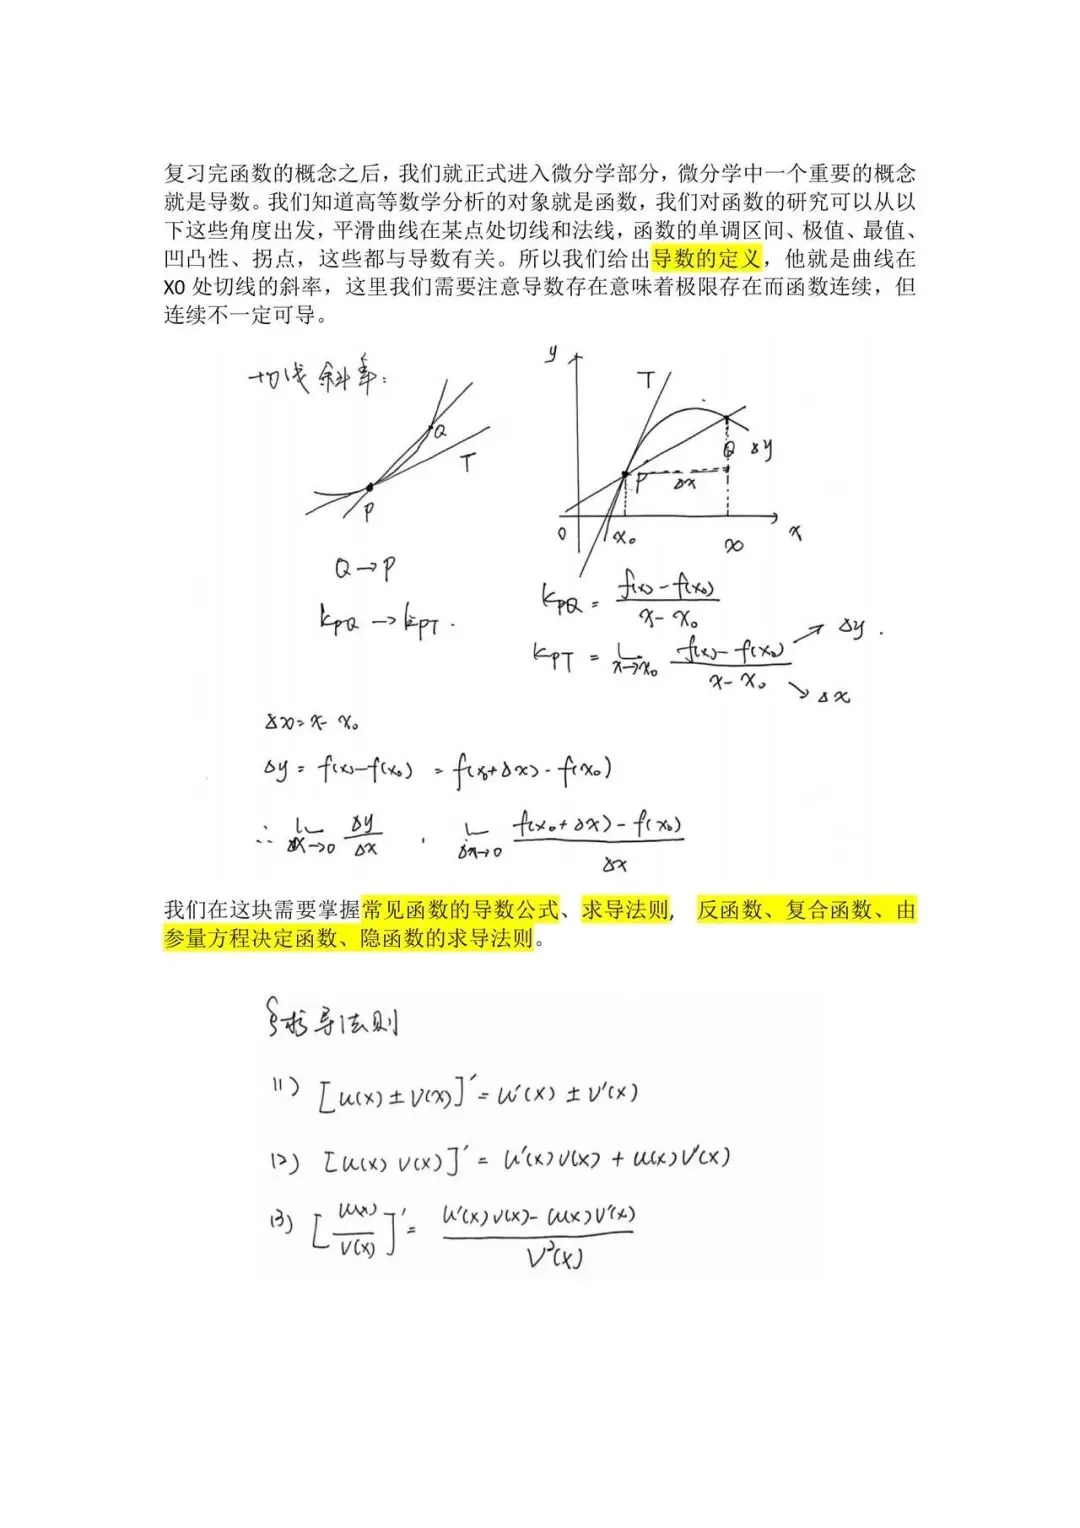 复习完函数的概念之后，我们就正式进入微分学部分，微分学中一个重要的概念
就是导数。我们知道高等数学分析的对象就是函数，我们对函数的研究可以从以
下这些角度出发，平滑曲线在某点处切线和法线，函数的单调区间、极值、最值、
凹凸性、拐点，这些都与导数有关。所以我们给出导数的定义，他就是曲线在
X0 处切线的斜率，这里我们需要注意导数存在意味着极限存在而函数连续，但
连续不一定可导。
切线斜率：
Q
T
P
Q→P
k_PQ → k_PT .
y
T
Q
Δy
P
Δx
0
x₀
x
x
k_PQ = (f(x)-f(x₀))/(x-x₀)
k_PT = L_(x→x₀) (f(x)-f(x₀))/(x-x₀)
→ Δy .
↘ Δx
Δx = x - x₀
Δy = f(x)-f(x₀) = f(x₀+Δx) - f(x₀)
∴ L_(Δx→0) Δy/Δx . L_(Δx→0) (f(x₀+Δx)-f(x₀))/Δx
我们在这块需要掌握常见函数的导数公式、求导法则， 反函数、复合函数、由
参量方程决定函数、隐函数的求导法则。
§求导法则
(1) [u(x)±v(x)]′ = u′(x)±v′(x)
(2) [u(x)v(x)]′ = u′(x)v(x) + u(x)v′(x)
(3) [u(x)/v(x)]′ = (u′(x)v(x)-u(x)v′(x))/v²(x)